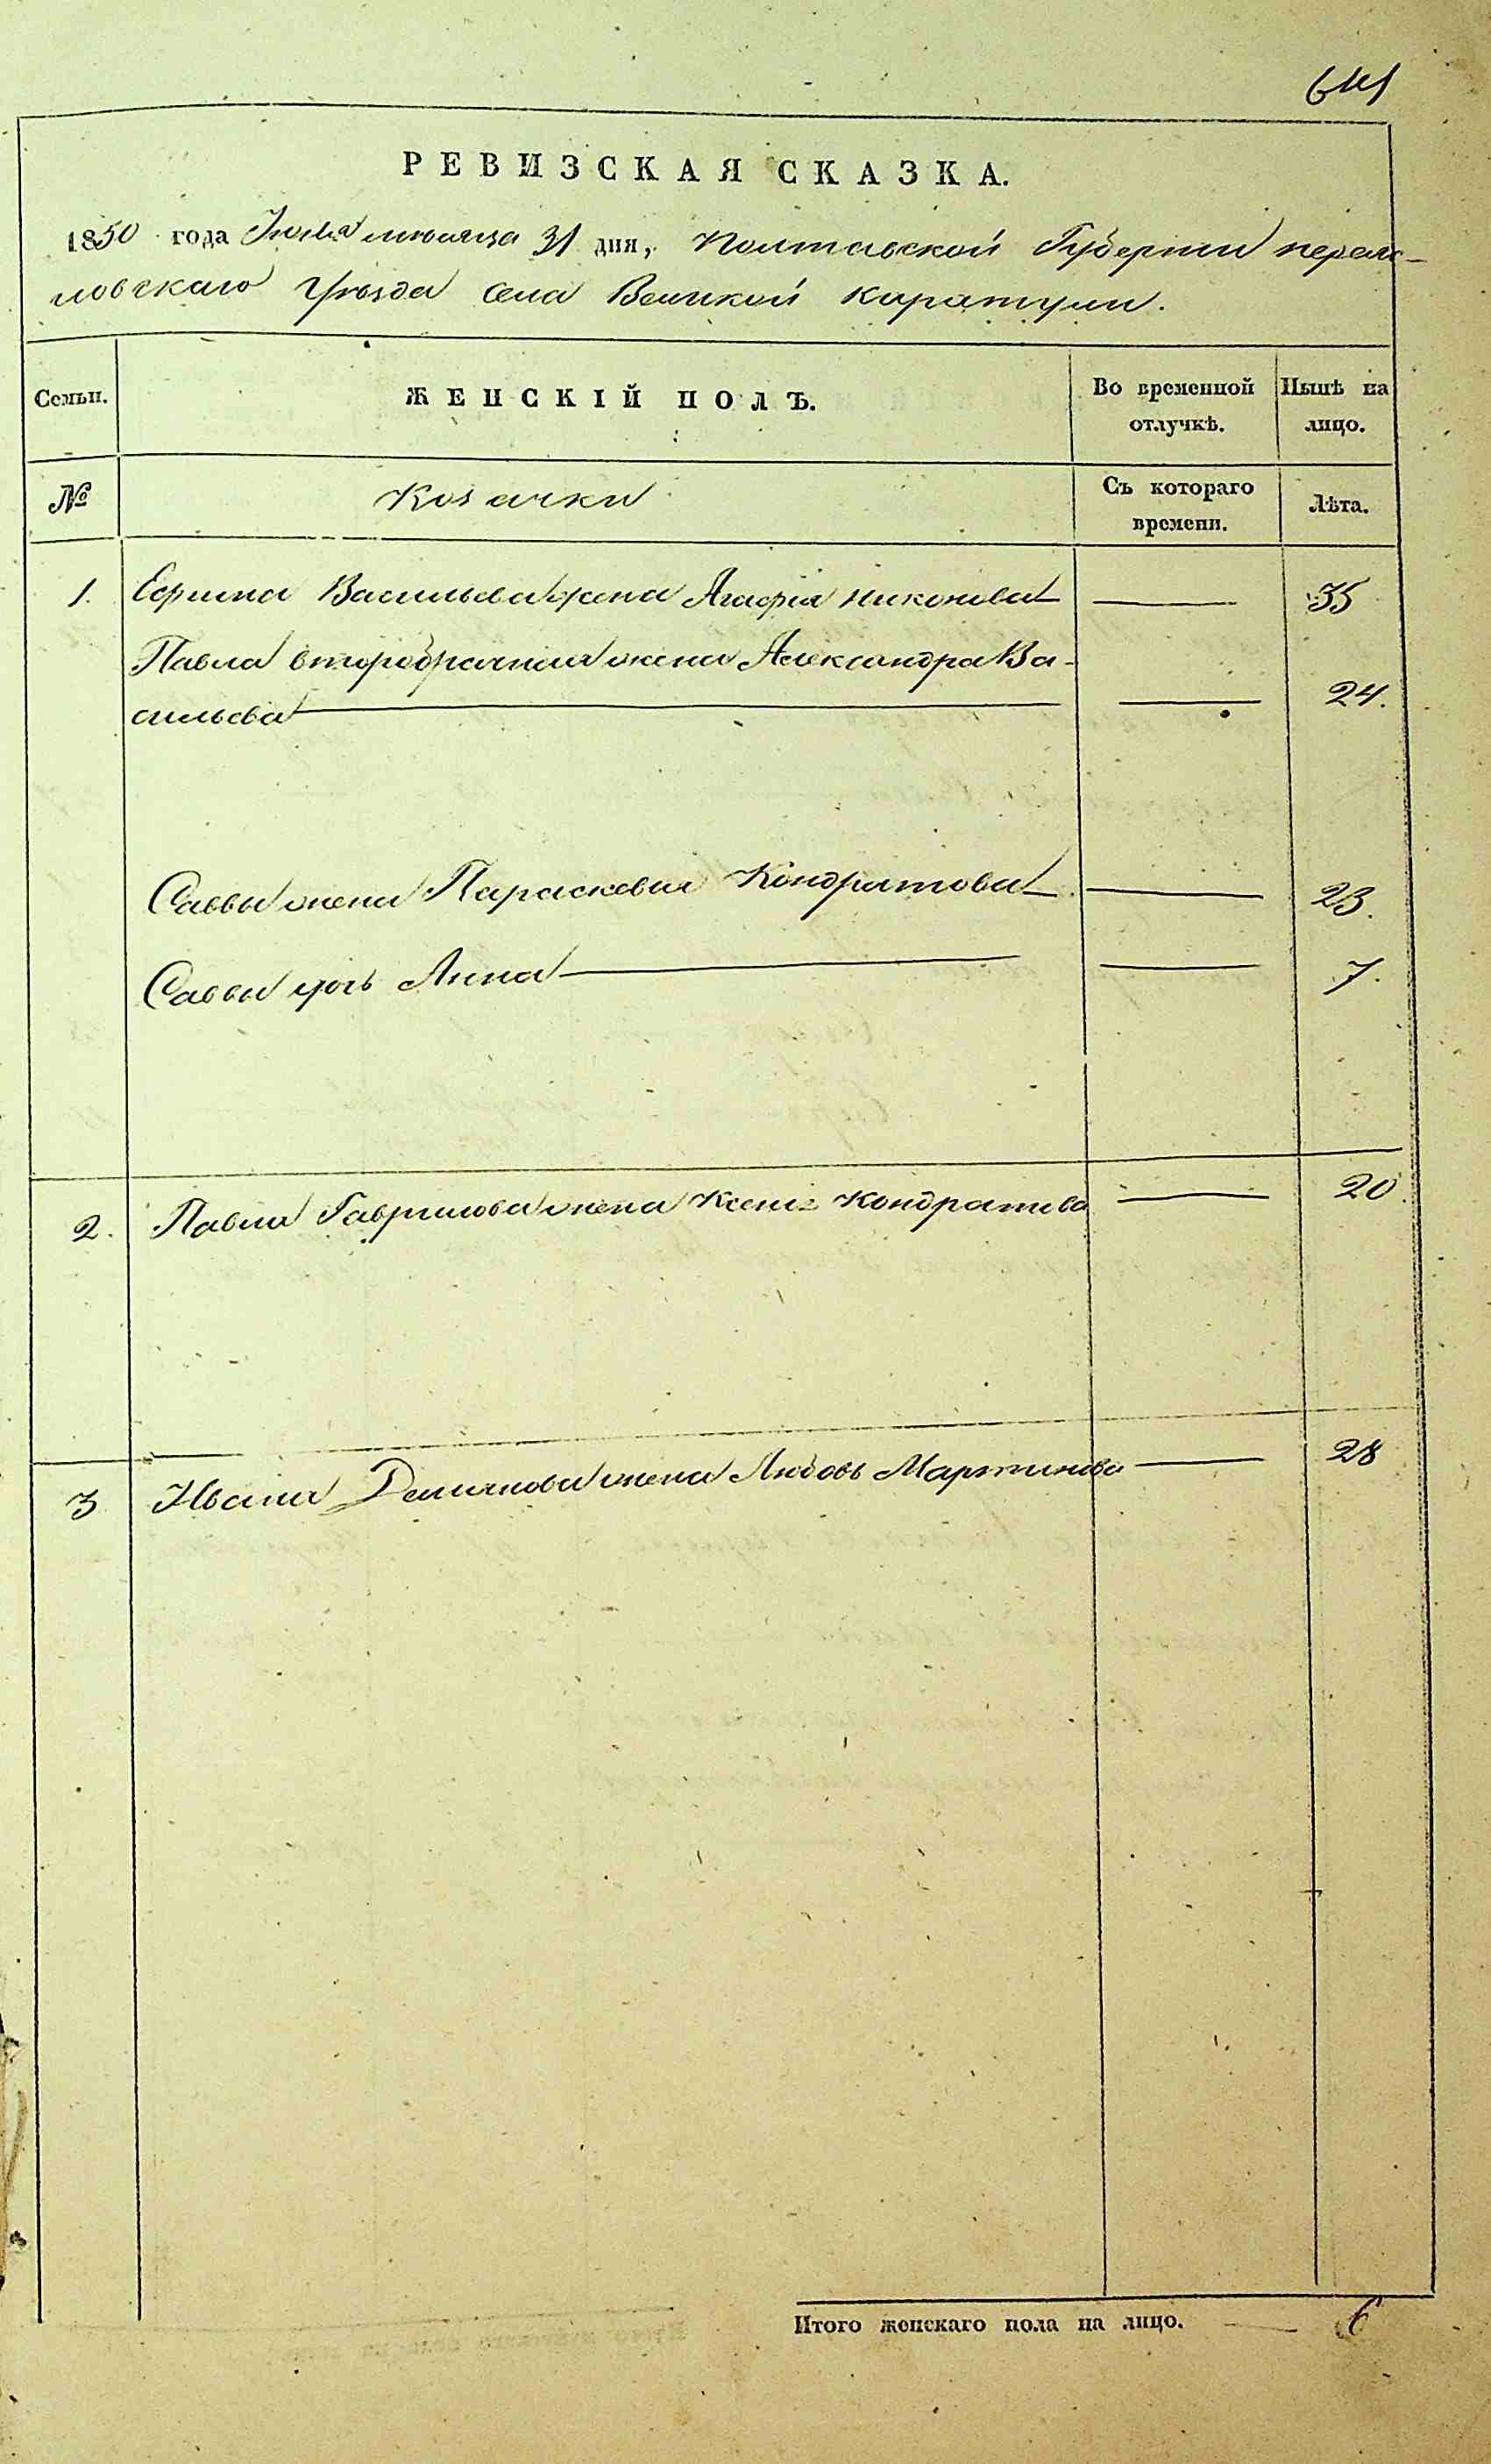 641
РЕВИЗСКАЯ СКАЗКА.
1850 года Июля месяца 31 дня, Полтавской Губернии переяс-
ловскаго Уѣзда села Великой Каратули.
Семьи.
ЖЕНСКІЙ ПОЛЪ.
Во временной отлучкѣ.
Нынѣ на лицо.
№
Козачки
Съ котораго времени.
Лѣта.
1. Ефима Васильева жена Агафія Никонова — 35
Павла второбрачная жена Александра Ва-
сильева — 24.
Саввы жена Параскевия Кондратова — 23.
Саввы дочь Анна — 7.
2. Павла Гаврилова жена Ксенія Кондратева — 20.
3 Ивана жена Любовь Мартинова — 28
Итого женскаго пола на лицо. — 6